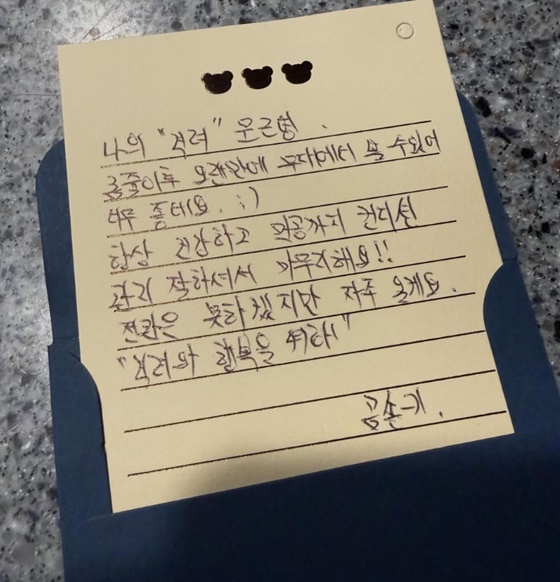 나의 "격려" 문근형.
곰줄이후 오랜만에 무대에서 볼 수 있어
너무 좋네요. :)
항상 건강하고 막공까지 컨디션
관리 잘하셔서 마무리해요!!
전관은 못하겠지만 자주 올게요.
"격려와 행복을 위하"
곰손기.